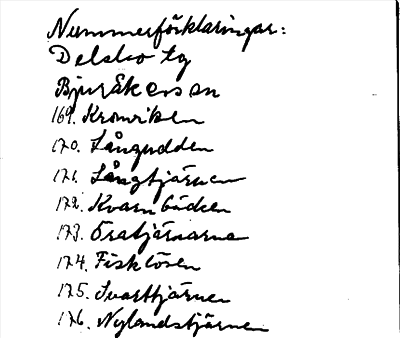 Nummerförklaringar:
Delsbo tg
Bjuråkers sn
169. Kromviken
170. Långudden
171. Långtjärnen
172. Kvarnbäcken
173. Öratjärnarna
174. Fisklösen
175. Svarttjärnen
176. Nylandstjärnen